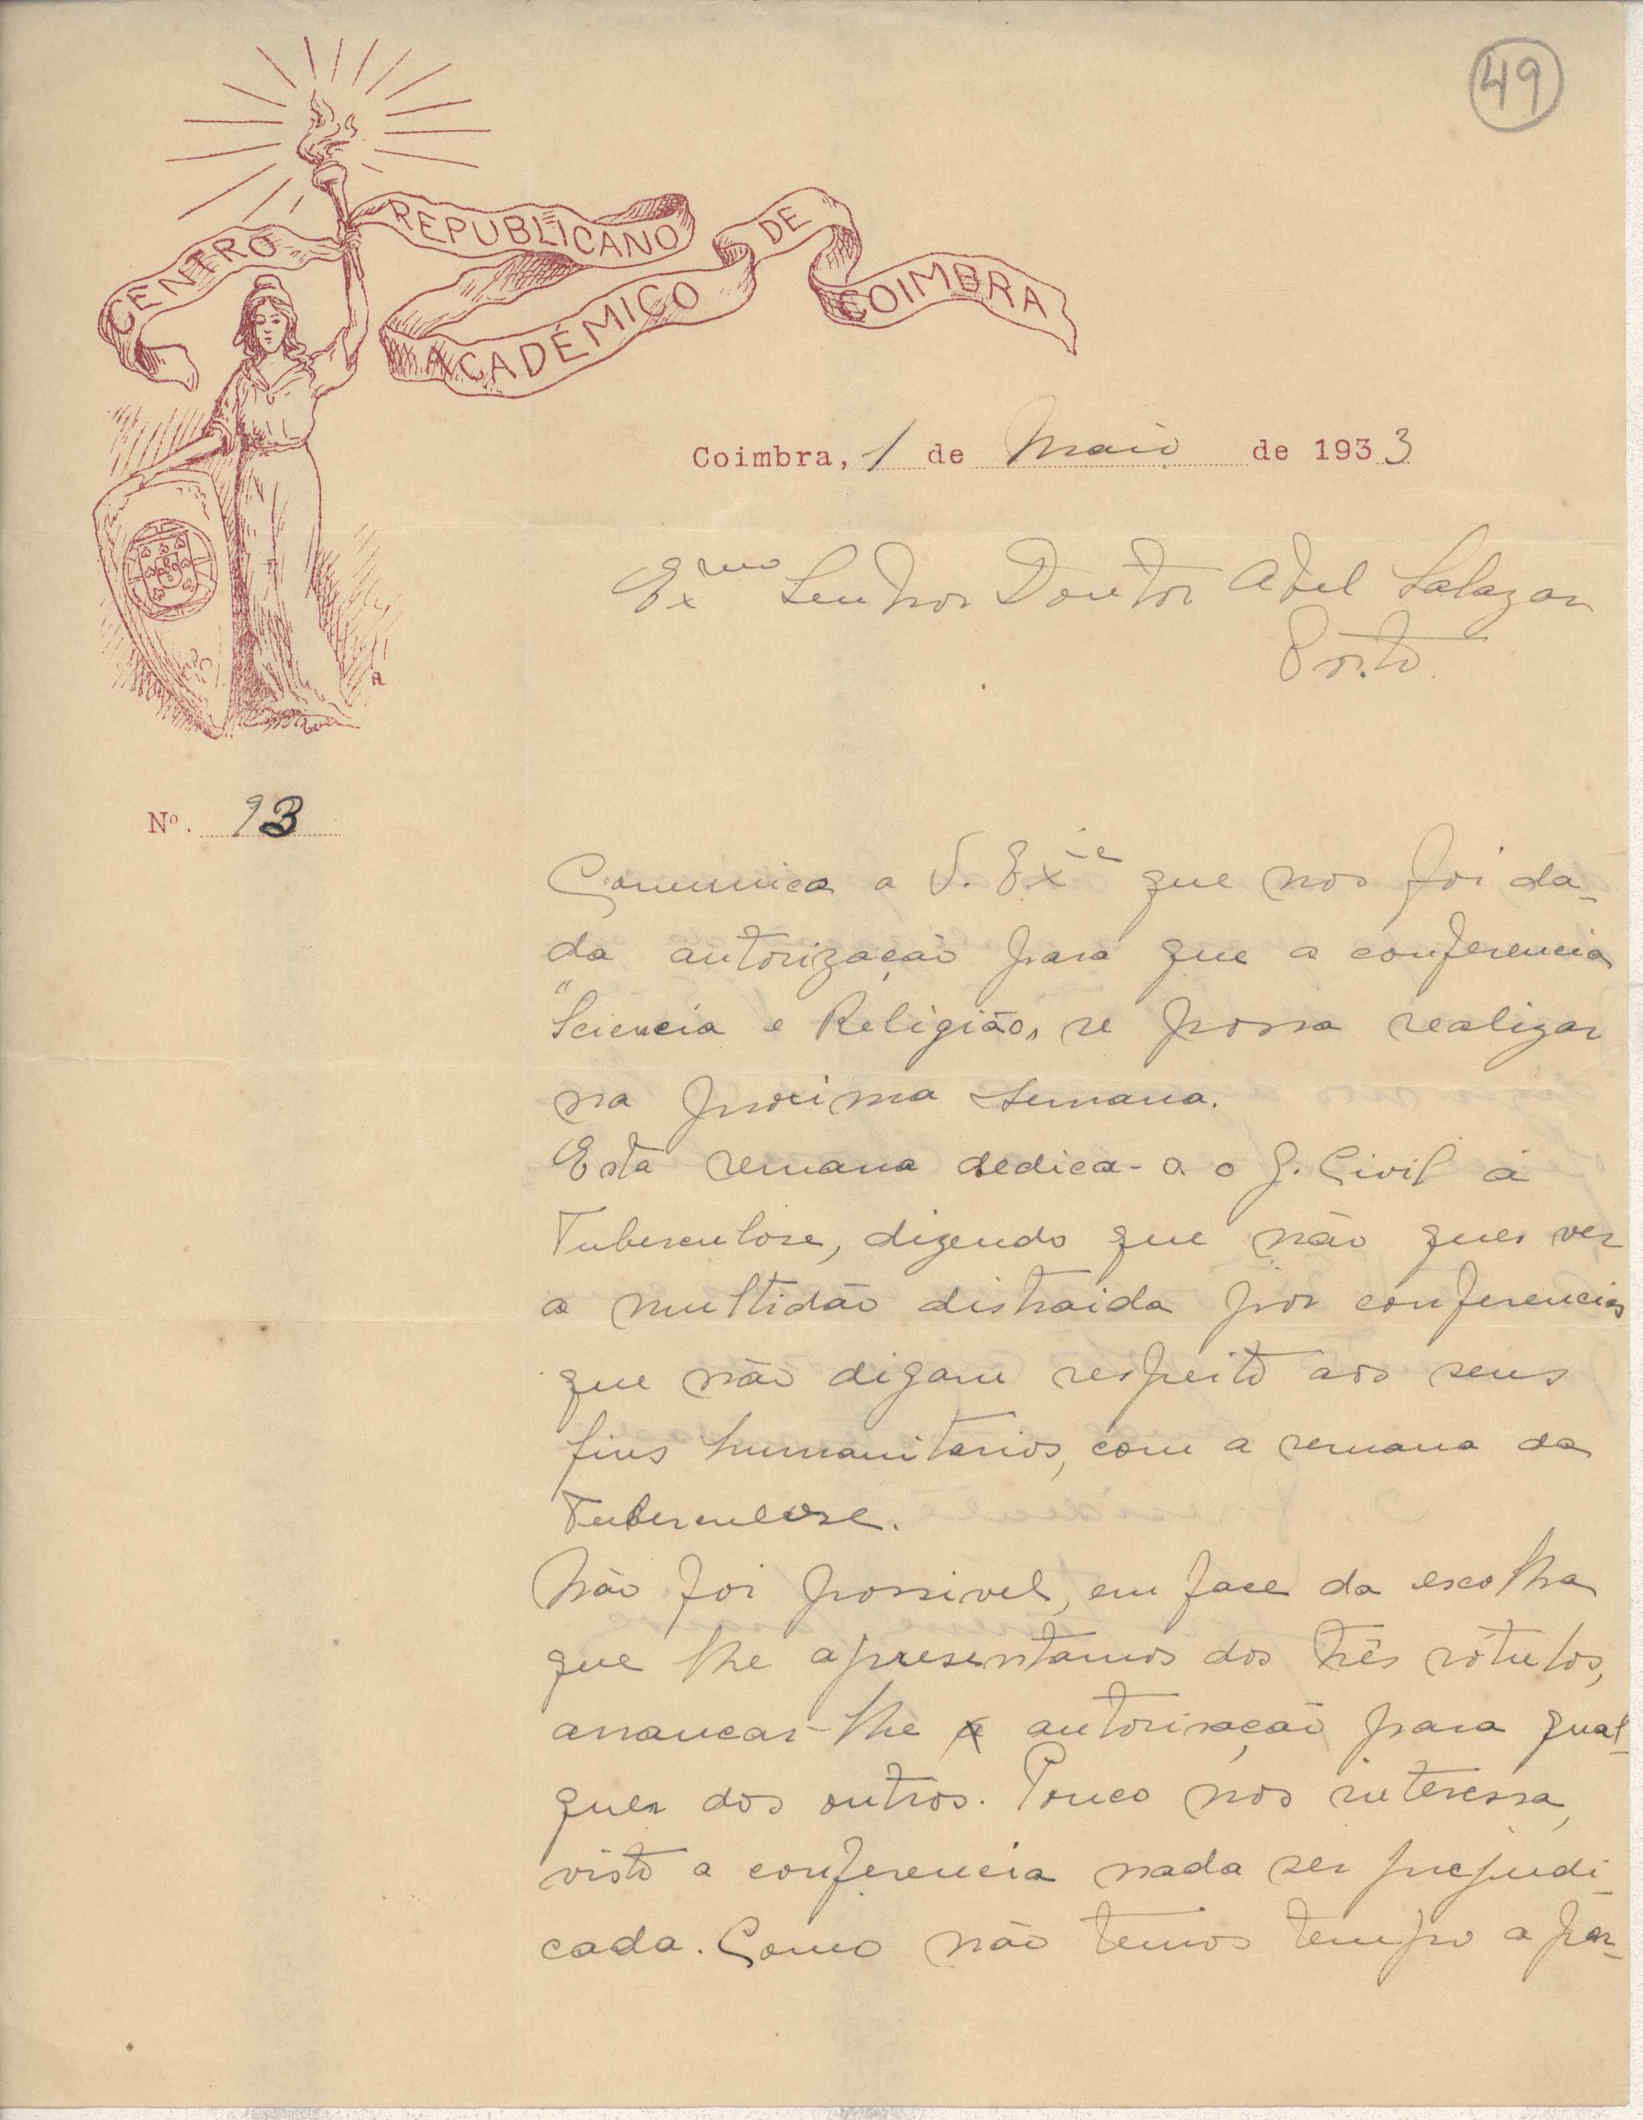 49
CENTRO REPUBLICANO
ACADÉMICO DE COIMBRA
Coimbra, 1 de Maio de 1933
Exmo Senhor Doutor Abel Salazar
Porto.
Nº. 93
Comunico a V. Exie que nos foi da-
da autorização para que a conferencia
"Sciencia e Religião" se possa realizar
na proxima semana.
Esta semana dedica-a o G. Civil á
Tuberculose, dizendo que não quer ver
a multidão distraida por conferencias
que não digam respeito aos seus
fins humanitarios, com a semana da
Tuberculose.
Não foi possivel, em face da escolha
que lhe apresentamos dos três rótulos,
arrancar-lhe a autorisação para qual-
quer dos outros. Pouco nos interessa,
visto a conferencia nada ser prejudi-
cada. Como não temos tempo a per-